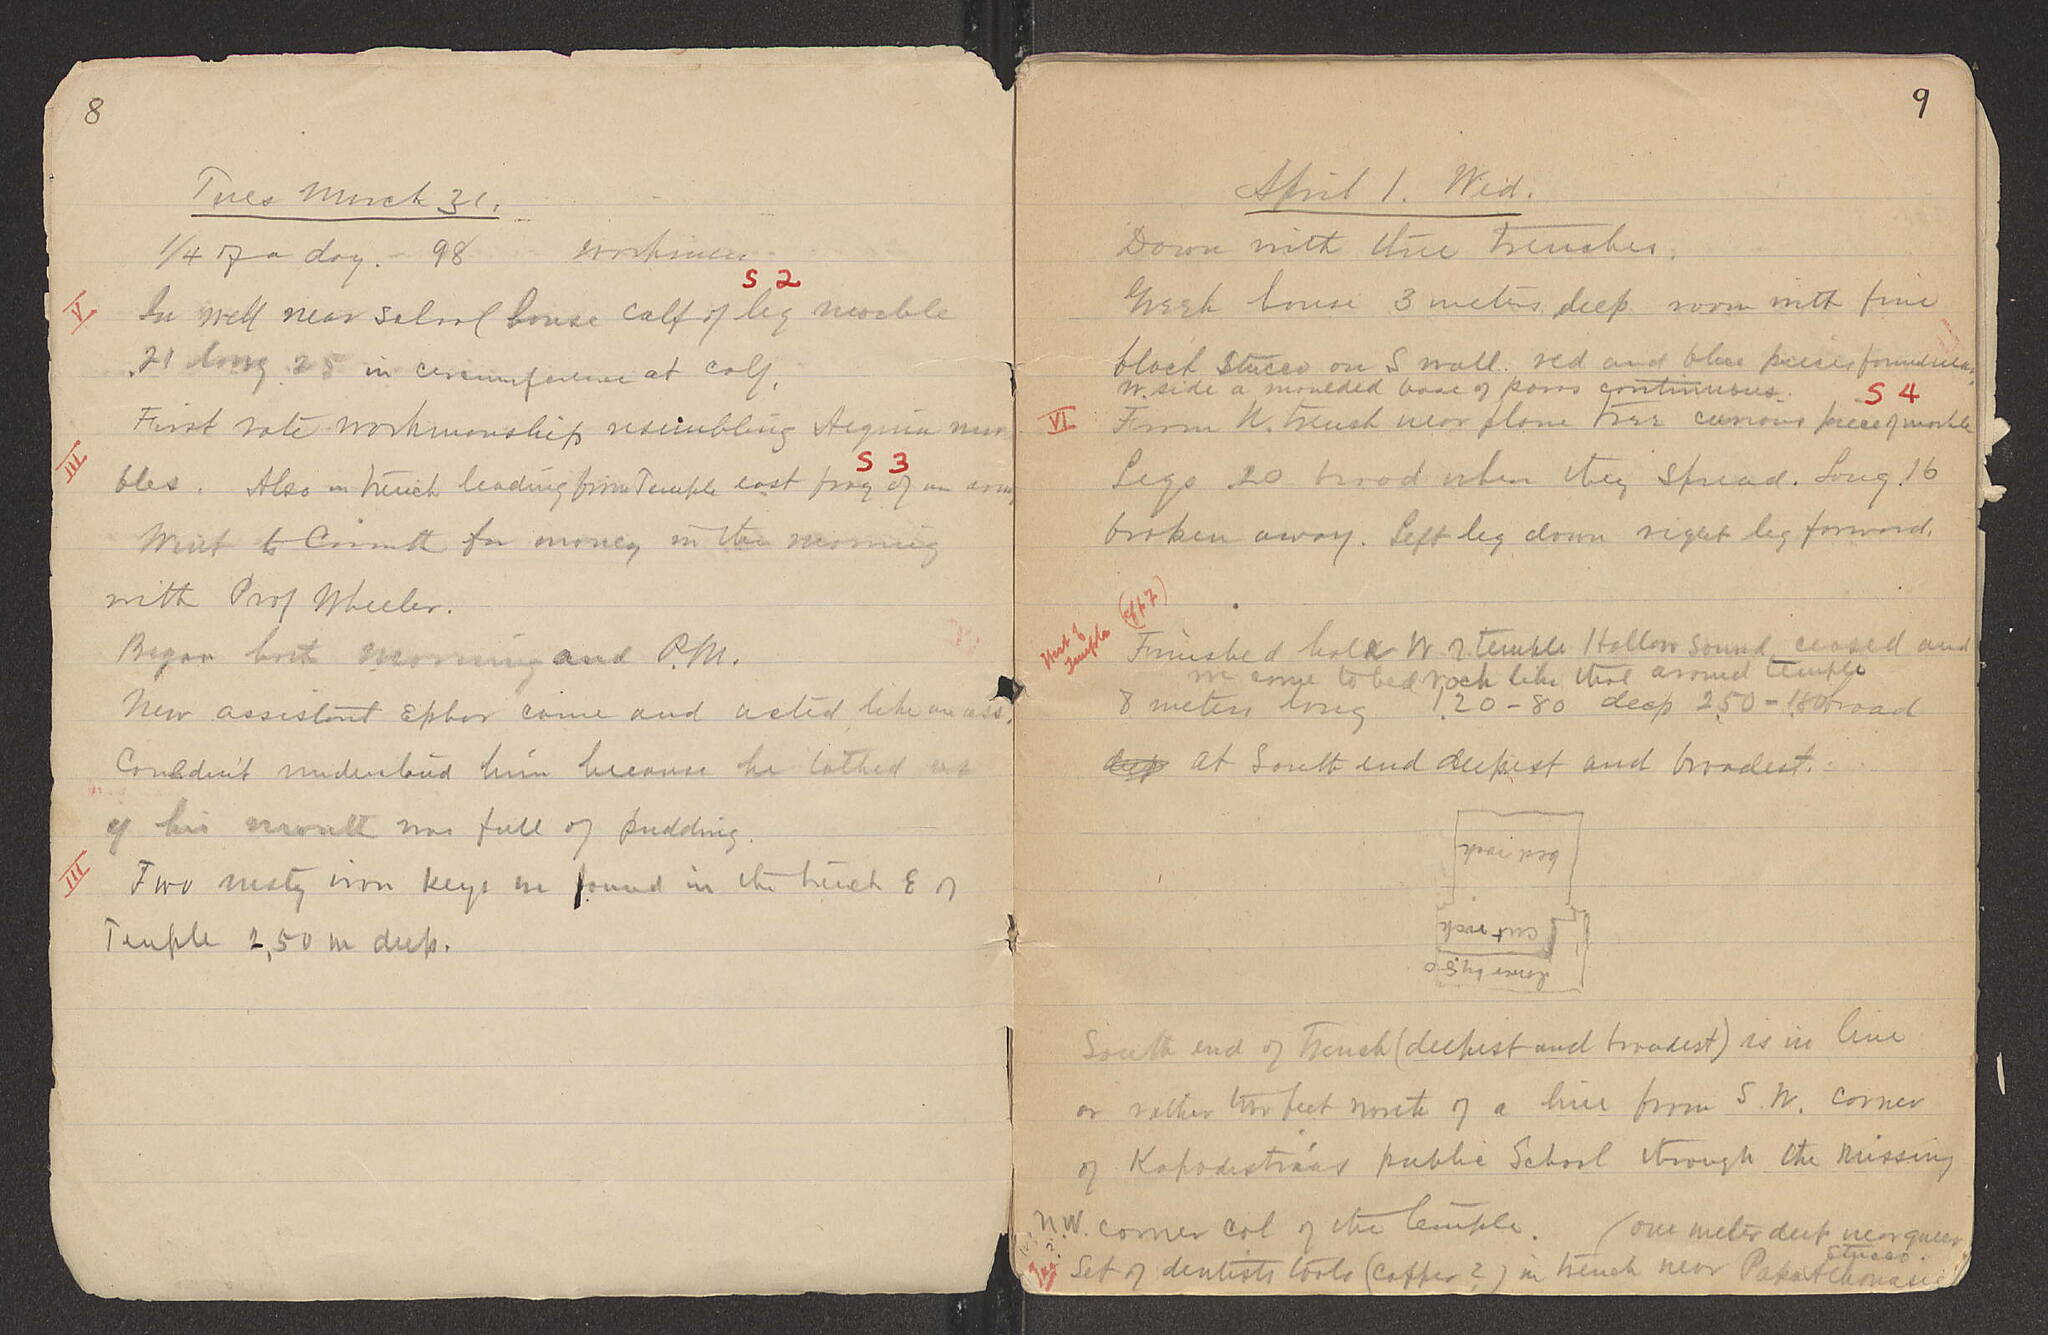 8
Tues March 31.
1/4 of a day. 98 workmen
S 2
V In well near School house calf of leg marble
.21 long .25 in circumference at calf.
First rate workmanship resembling Aegina mar
S 3
III bles. Also in trench leading from Temple east frag of an arm
Went to Corinth for money in the morning
with Prof Wheeler.
Began both morning and P.M.
New assistant Ephor came and acted like an ass.
Couldn't understand him because he talked as
if his mouth was full of pudding.
III Two rusty iron keys we found in the trench E of
Temple 2,50 m deep.
9
April 1. Wed.
Down with three trenches.
Greek house 3 meters deep room with fine
black stucco on S wall. red and blue pieces found near.
W. side a moulded base of poros continuous.
S 4
VI From N. trench near plane tree curious piece of marble
Legs 20 broad when they spread. Long .16
broken away. Left leg down right leg forward.
(cf p. 7)
West of Temple
Finished hole W of temple Hollow sound ceased and
we come to bed rock like that around temple
8 meters long 1.20-80 deep 2.50-1.80 broad
deep at South end deepest and broadest.
bed rock
cut rock
South end of trench (deepest and broadest) is in line
or rather two feet north of a line from S.W. corner
of Kapodistrias public School through the missing
N.W. corner col of the temple. (one meter deep near queer
stucco.
Set of dentists tools (copper?) in trench near Papa Athanasie